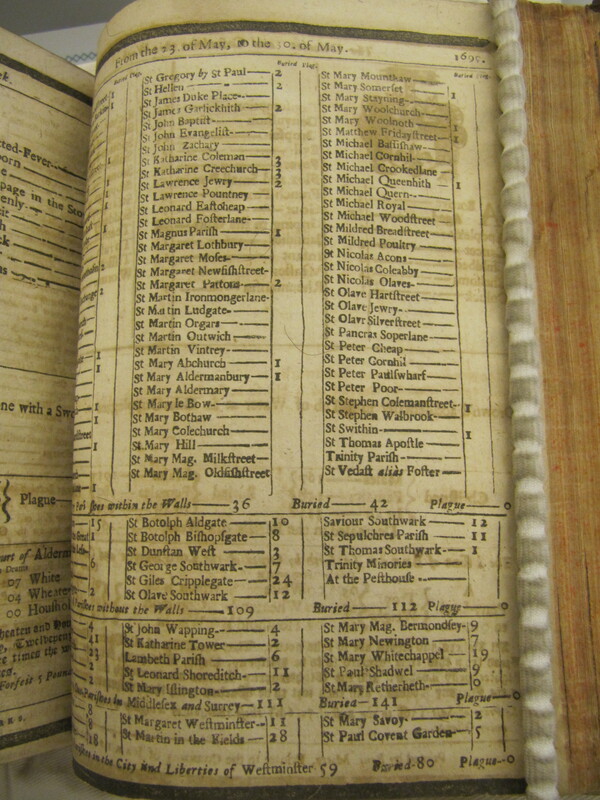 From the 23. of May, to the 30. of May. 1695.
Buried Plag. Buried Plag. Buried Plag.
St Gregory by St Paul 2
St Hellen 2
St James Duke Place
St James Garlickhith 2
St John Baptist
St John Evangelist
St John Zachary
St Katharine Coleman 3
St Katharine Creechurch 3
St Lawrence Jewry 2
St Lawrence Pountney
St Leonard Eastcheap
St Leonard Fosterlane
St Magnus Parish 1
St Margaret Lothbury
St Margaret Moses
St Margaret Newfishstreet
St Margaret Pattons 2
St Martin Ironmongerlane
St Martin Ludgate
St Martin Orgars
St Martin Outwich
St Martin Vintrey
St Mary Abchurch 1
St Mary Aldermanbury 1
St Mary Aldermary
St Mary le Bow
St Mary Bothaw
St Mary Colechurch
St Mary Hill
St Mary Mag. Milkstreet
St Mary Mag. Oldfishstreet
St Mary Mounthaw
St Mary Somerset 1
St Mary Stayning
St Mary Woolchurch
St Mary Woolnoth
St Matthew Fridaystreet 1
St Michael Bassishaw
St Michael Cornhil
St Michael Crookedlane
St Michael Queenhith 1
St Michael Quern
St Michael Royal
St Michael Woodstreet
St Mildred Breadstreet
St Mildred Poultry
St Nicolas Acons
St Nicolas Coleabby
St Nicolas Olaves
St Olave Hartstreet
St Olave Jewry
St Olave Silverstreet
St Pancras Soperlane
St Peter Cheap
St Peter Cornhil
St Peter Paulswharf
St Peter Poor
St Stephen Colemanstreet 1
St Stephen Walbrook
St Swithin 1
St Thomas Apostle
Trinity Parish
St Vedast alias Foster
within the Walls 36 Buried 42 Plague 0
St Botolph Aldgate 10
St Botolph Bishopsgate 8
St Dunstan West 3
St George Southwark 7
St Giles Cripplegate 24
St Olave Southwark 12
Saviour Southwark 12
St Sepulchres Parish 11
St Thomas Southwark 1
Trinity Minories
At the Pesthouse
without the Walls 109 Buried 112 Plague 0
St John Wapping 4
St Katharine Tower 2
Lambeth Parish 6
St Leonard Shoreditch 11
St Mary Islington 2
St Mary Mag. Bermondsey 9
St Mary Newington 7
St Mary Whitechappel 19
St Paul Shadwel 9
St Mary Retherheth 0
Parishes in Middlesex and Surrey 111 Buried 141 Plague 0
St Margaret Westminster 11
St Martin in the Fields 28
St Mary Savoy 2
St Paul Covent Garden 5
in the City and Liberties of Westminster 59 Buried 80 Plague 0
Plague
07 White